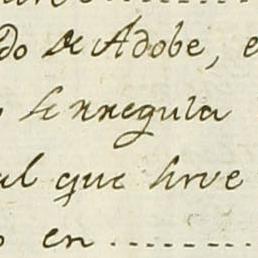 do de Adobe, e
se rregula
al que sirve
o en ..........